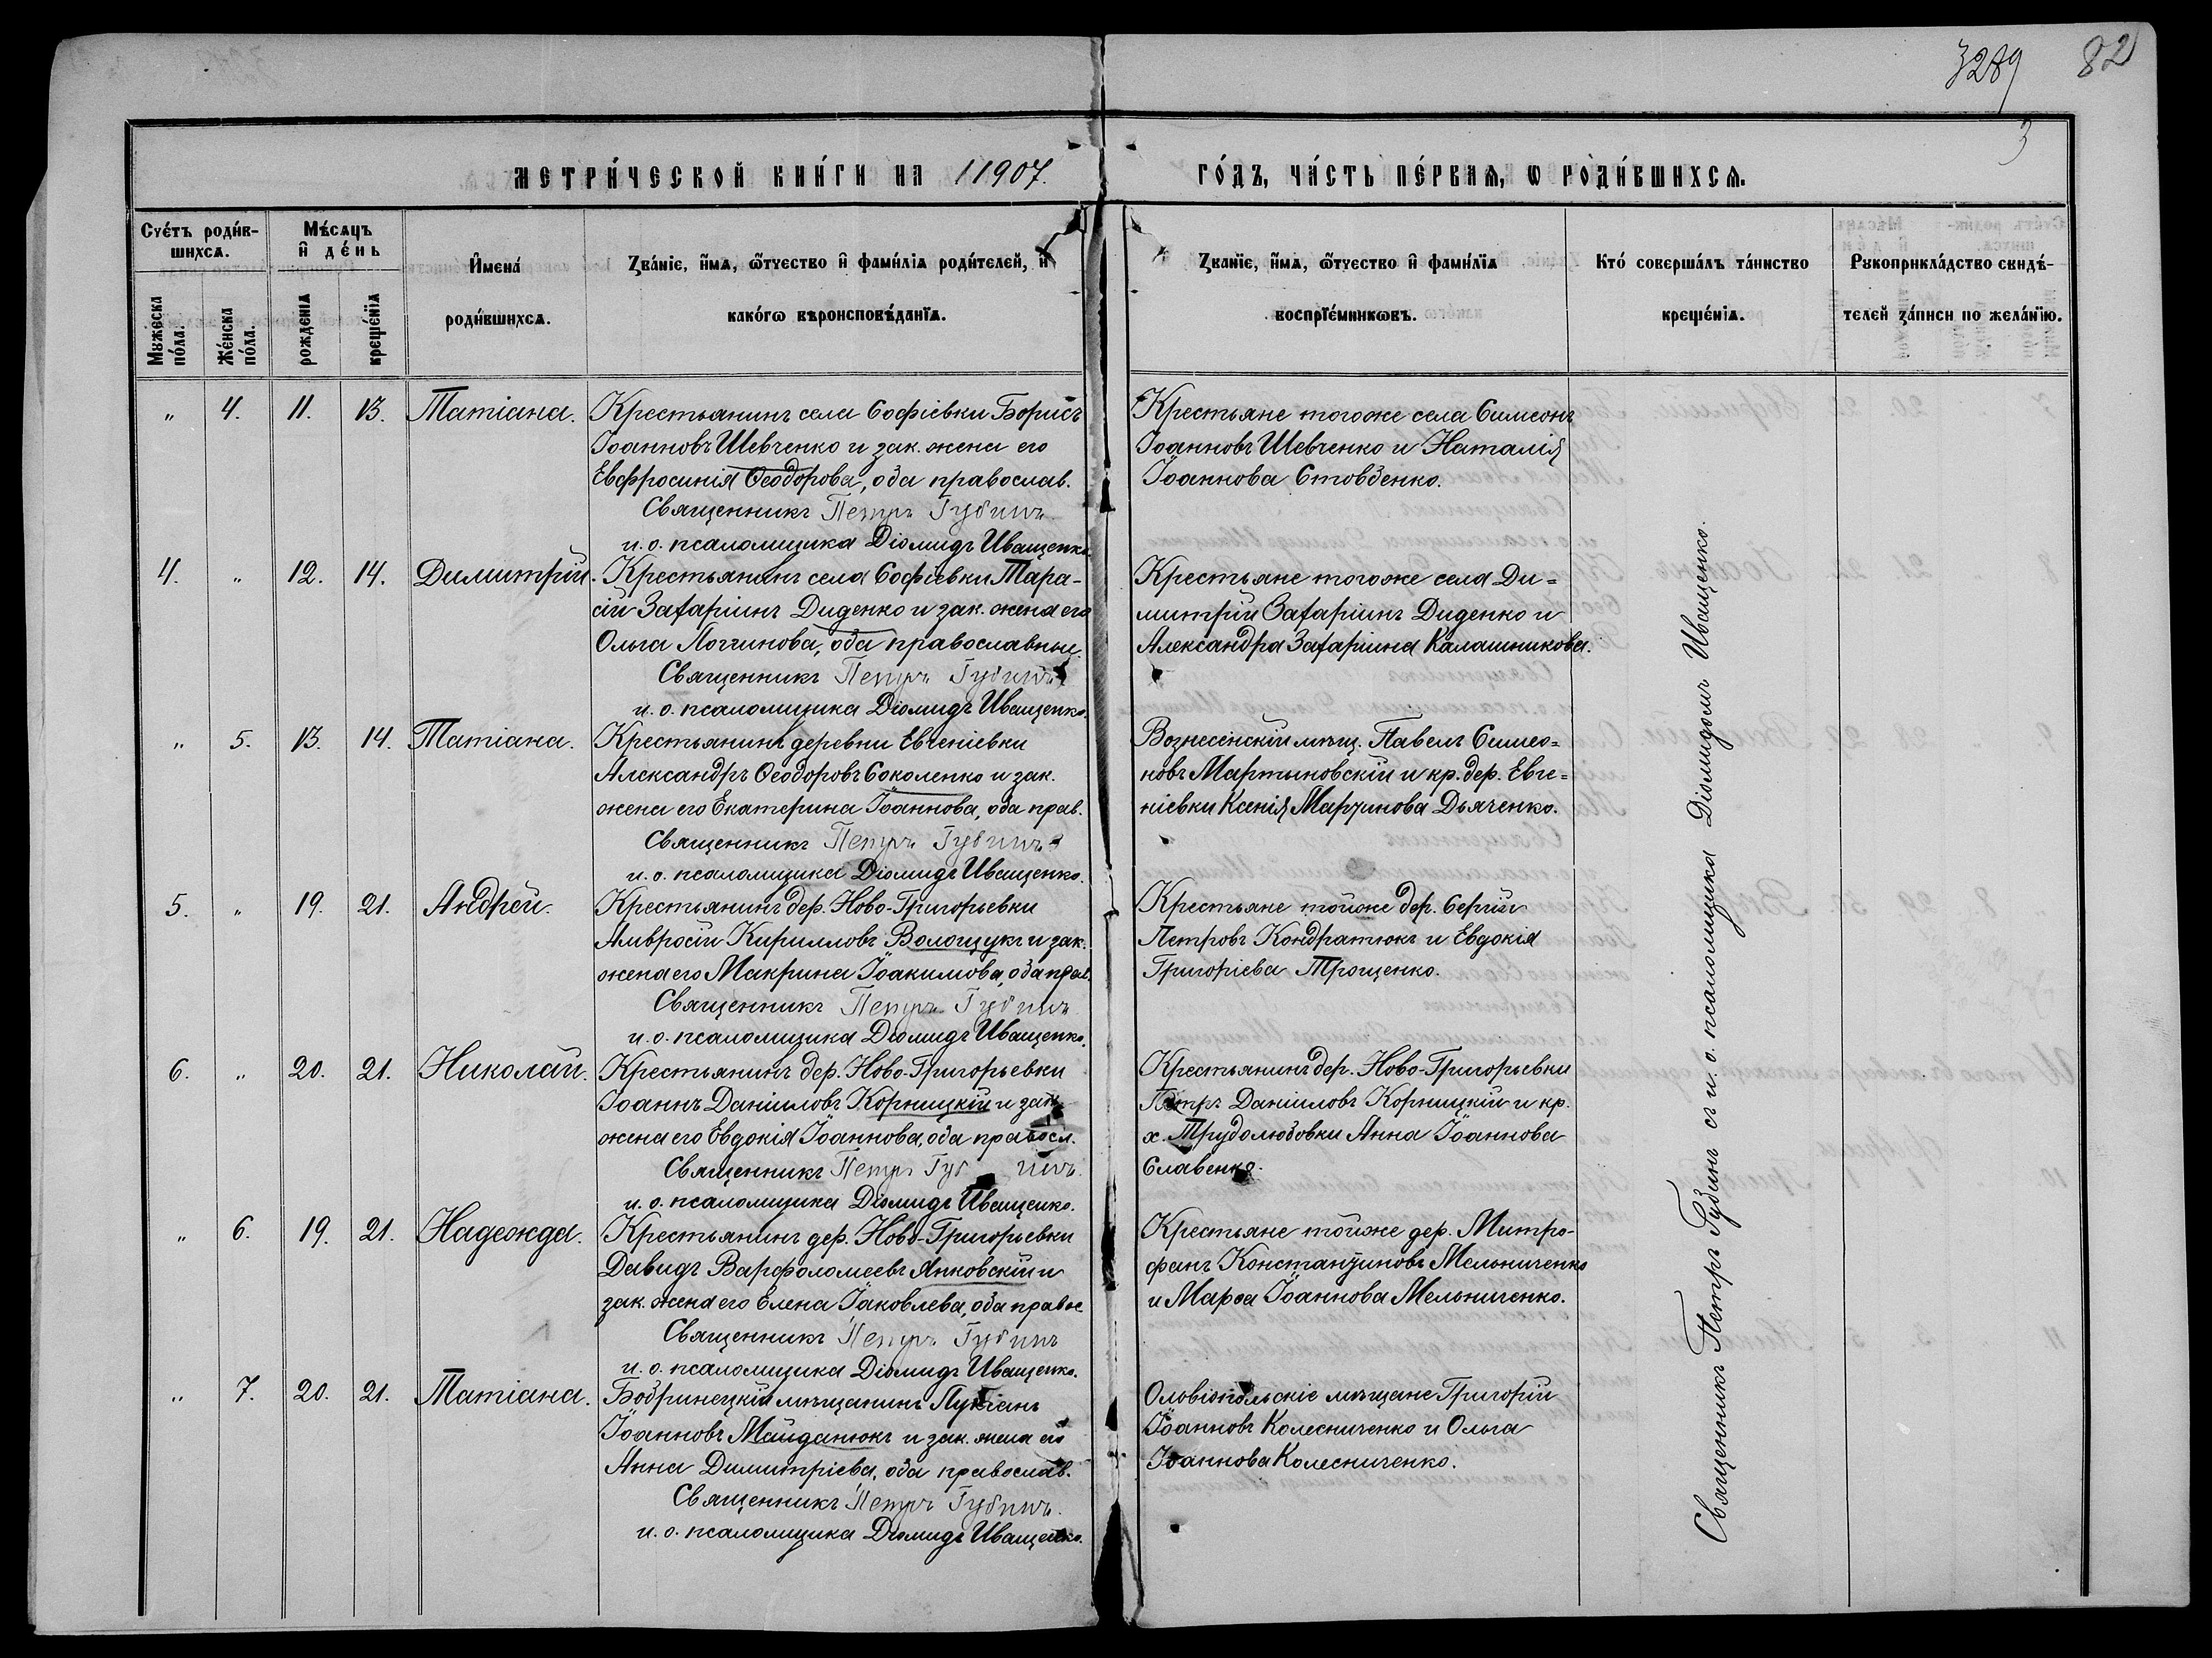 3289 82
3
МЕТРИ́ЧЕСКОЙ КНИ́ГИ НА 11907. ГО́ДЪ, ЧА́СТЬ ПЕ́РВАѦ, Ѡ РОДИ́ВШИХСѦ.
Сче́тъ роди́в-
шихсѧ.
Мꙋжеска по́ла.
Же́нска по́ла.
Мѣ́сѧцъ
и҆ де́нь
рожденїѧ
креще́нїѧ
И҆мена́
роди́вшихсѧ.
Ꙁва́нїе, и҆́мѧ, ѻ҆́тчество и҆ фами́лїѧ роди́телей, и҆
како́гѡ вѣроисповѣ́данїѧ.
Ꙁванїе, и҆́мѧ, ѻ҆́тчество и҆ фами́лїѧ
воспрїе́мникѡвъ.
Кто́ соверша́лъ та́инство
креще́нїѧ.
Рꙋкоприкла́дство свидѣ́-
телей ꙁа́писи по жела́нїю.
„ 4. 11. 13. Татіана. Крестьянинъ села Софіевки Борисъ
Іоанновъ Шевченко и зак. жена его
Евфросинія Ѳеодорова, оба православ.
Священникъ Петръ Губинъ
и. о. псаломщика Діомидъ Иващенко.
Крестьяне тогоже села Симеонъ
Іоанновъ Шевченко и Наталія
Іоаннова Стовбенко.
4. „ 12. 14. Димитрій. Крестьянинъ села Софіевки Тара-
сій Захаріинъ Диденко и зак. жена его
Ольга Логгинова, оба православные.
Священникъ Петръ Губинъ
и. о. псаломщика Діомидъ Иващенко.
Крестьяне тогоже села Ди-
митрій Захаріинъ Диденко и
Александра Захаріина Калашникова.
„ 5. 13. 14. Татіана. Крестьянинъ деревни Евгеніевки
Александръ Ѳеодоровъ Соколенко и зак.
жена его Екатерина Іоаннова, оба прав.
Священникъ Петръ Губинъ
и. о. псаломщика Діомидъ Иващенко.
Вознесенскій мѣщ. Павелъ Симео-
новъ Мартыновскій и кр. дер. Евге-
ніевки Ксенія Мартинова Дьяченко.
5. „ 19. 21. Андрей. Крестьянинъ дер. Ново-Григорьевки
Амвросій Кирилловъ Волощукъ и зак.
жена его Макрина Іоакимова, оба прав.
Священникъ Петръ Губинъ
и. о. псаломщика Діомидъ Иващенко.
Крестьяне тойже дер. Сергій
Петровъ Кондратюкъ и Евдокія
Григоріева Трощенко.
6. „ 20. 21. Николай. Крестьянинъ дер. Ново-Григорьевки
Іоаннъ Даніиловъ Корницкій и зак.
жена его Евдокія Іоаннова, оба правосл.
Священникъ Петръ Губинъ.
и. о. псаломщика Діомидъ Иващенко.
Крестьянинъ дер. Ново-Григорьевки
Петръ Даніиловъ Корницкій и кр.
х. Трудолюбовки Анна Іоаннова
Славенко.
„ 6. 19. 21. Надежда. Крестьянинъ дер. Ново-Григорьевки
Давидъ Варфоломеевъ Янковскій и
зак. жена его Елена Іаковлева, оба правос
Священникъ Петръ Губинъ
и. о. псаломщика Діомидъ Иващенко.
Крестьяне тойже дер. Митро-
фанъ Константиновъ Мельниченко
и Марѳа Іоаннова Мельниченко.
„ 7. 20. 21. Татіана. Бобринецкій мѣщанинъ Лукіанъ
Іоанновъ Майданюкъ и зак. жена его
Анна Димитріева, оба православ.
Священникъ Петръ Губинъ.
и. о. псаломщика Діомидъ Иващенко.
Оловіопольскіе мѣщане Григорій
Іоанновъ Колесниченко и Ольга
Іоаннова Колесниченко.
Священникъ Петръ Губинъ съ и. о. псаломщика Діомидомъ Иващенко.